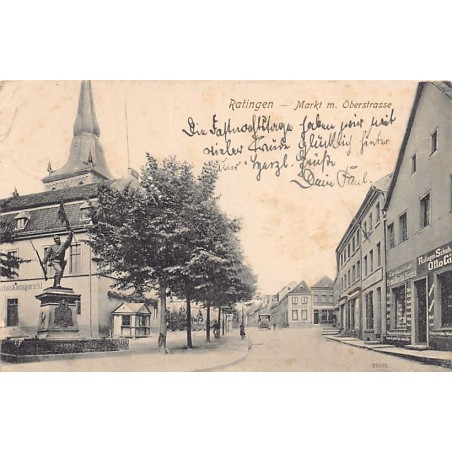 Ratingen — Markt m. Oberstrasse
Die Fastnachtstage haben wir mit
vieler Freude Glücklich hinter
Herzl. Grüße
Dein Paul.
Amtsgericht
Ratinger Schuh
Otto